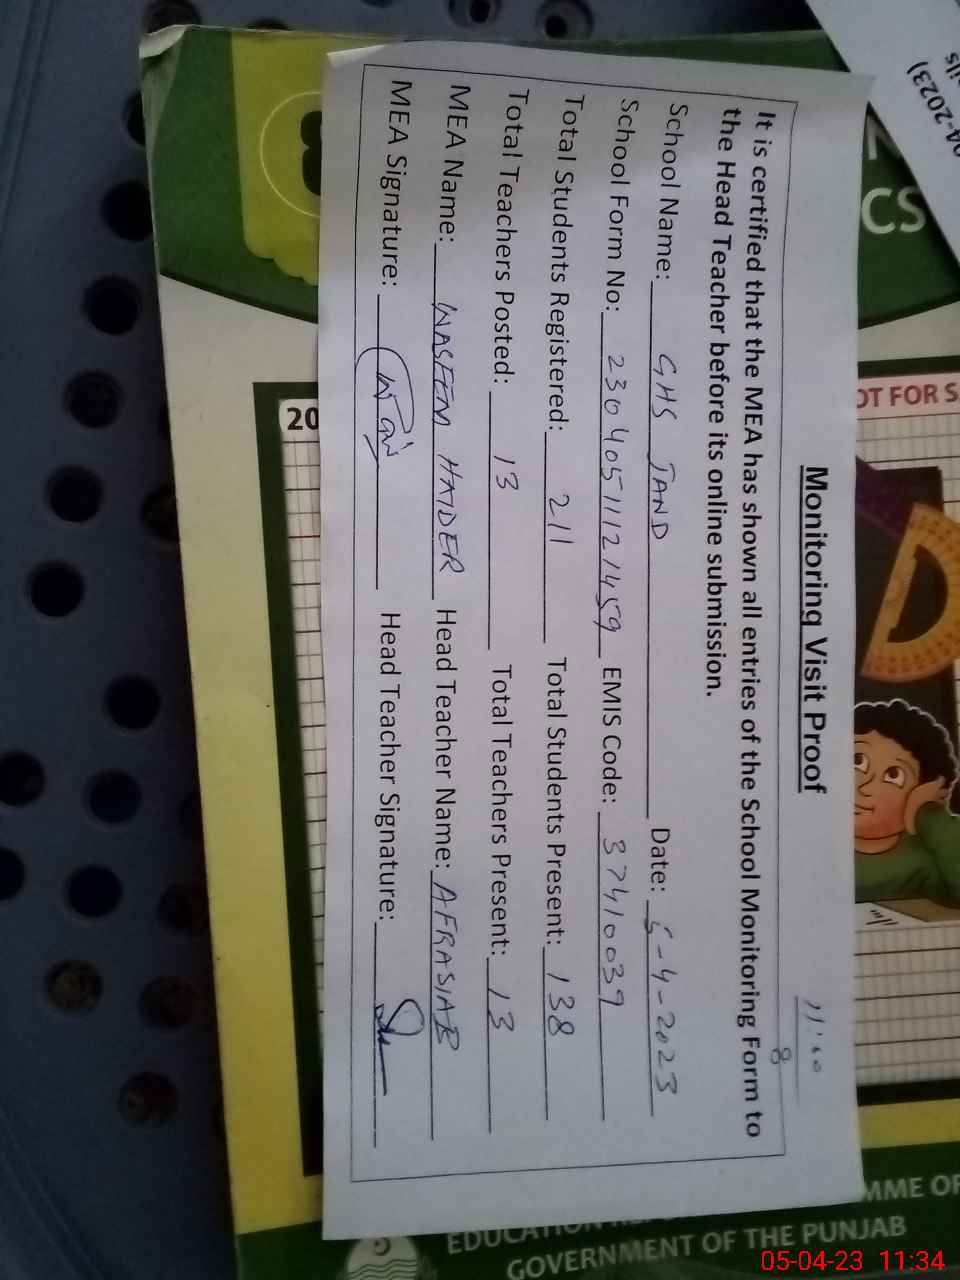 Monitoring Visit Proof
11:00
8
It is certified that the MEA has shown all entries of the School Monitoring Form to
the Head Teacher before its online submission.
School Name: GHS JAND Date: 5-4-2023
School Form No: 23040511121459 EMIS Code: 37410039
Total Students Registered: 211 Total Students Present: 138
Total Teachers Posted: 13 Total Teachers Present: 13
MEA Name: WASEEM HAIDER Head Teacher Name: AFRASIAB
MEA Signature: Head Teacher Signature:
04-2023)
CS
OT FOR S
20
MME OF
GOVERNMENT OF THE PUNJAB
05-04-23 11:34